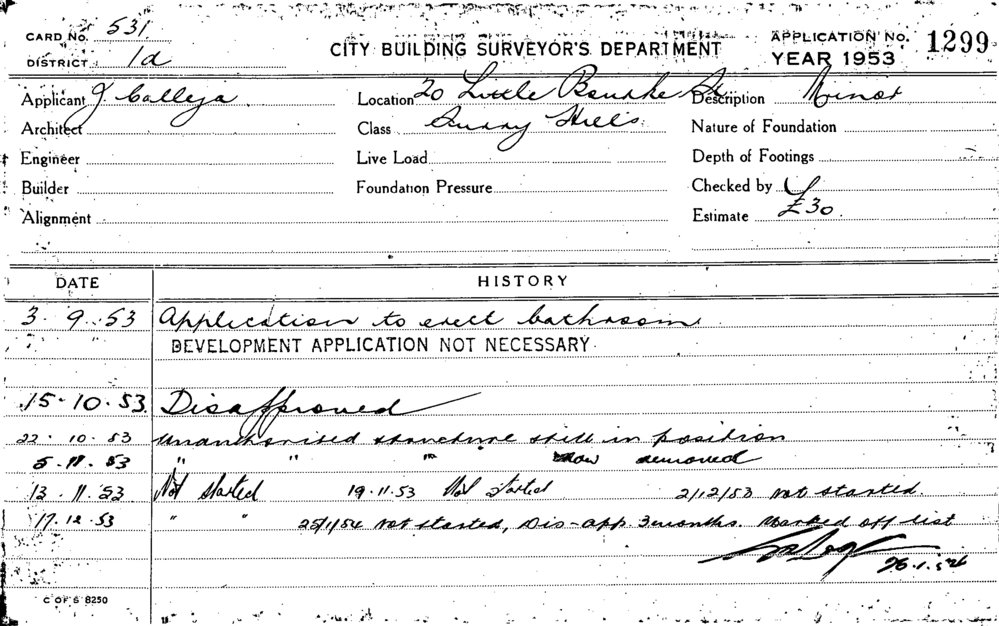 CARD NO. 531.
DISTRICT 1d
CITY BUILDING SURVEYOR'S DEPARTMENT
APPLICATION NO. 1299
YEAR 1953
Applicant J Calleja. Location 20 Little Bourke St Description Minor
Architect Class Surry Hills Nature of Foundation
Engineer Live Load Depth of Footings
Builder Foundation Pressure Checked by
Alignment Estimate £30.
DATE HISTORY
3. 9. 53 Application to erect bathroom.
DEVELOPMENT APPLICATION NOT NECESSARY.
15-10.53 Disapproved
22. 10. 53 Unauthorised structure still in position
5.11.53 " " " " now removed
13.11.53 Not started 19.11.53 Not started 2/12/53 not started.
17.12.53 " " 25/1/54 not started, Dis-app. 3 months. Marked off list
26.1.54
C OF S 8250